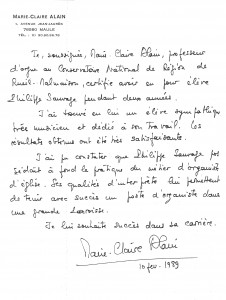 MARIE-CLAIRE ALAIN
78580 MAULE
Je, soussignée, Marie Claire Alain, professeur
d'orgue au Conservatoire National de Région de
Rueil-Malmaison, certifie avoir eu pour élève
Philippe Sauvage pendant deux années.
J'ai trouvé en lui un élève sympathique
très musicien et dédié à son travail. Les
résultats obtenus ont été très satisfaisants.
J'ai pu constater que Philippe Sauvage
à fond la pratique du métier d'organiste
d'église. Ses qualités d'interprète lui permettent
de tenir avec succès un poste d'organiste dans
une grande
Je lui souhaite succès dans sa carrière.
Marie-Claire Alain
10 fév. 1989